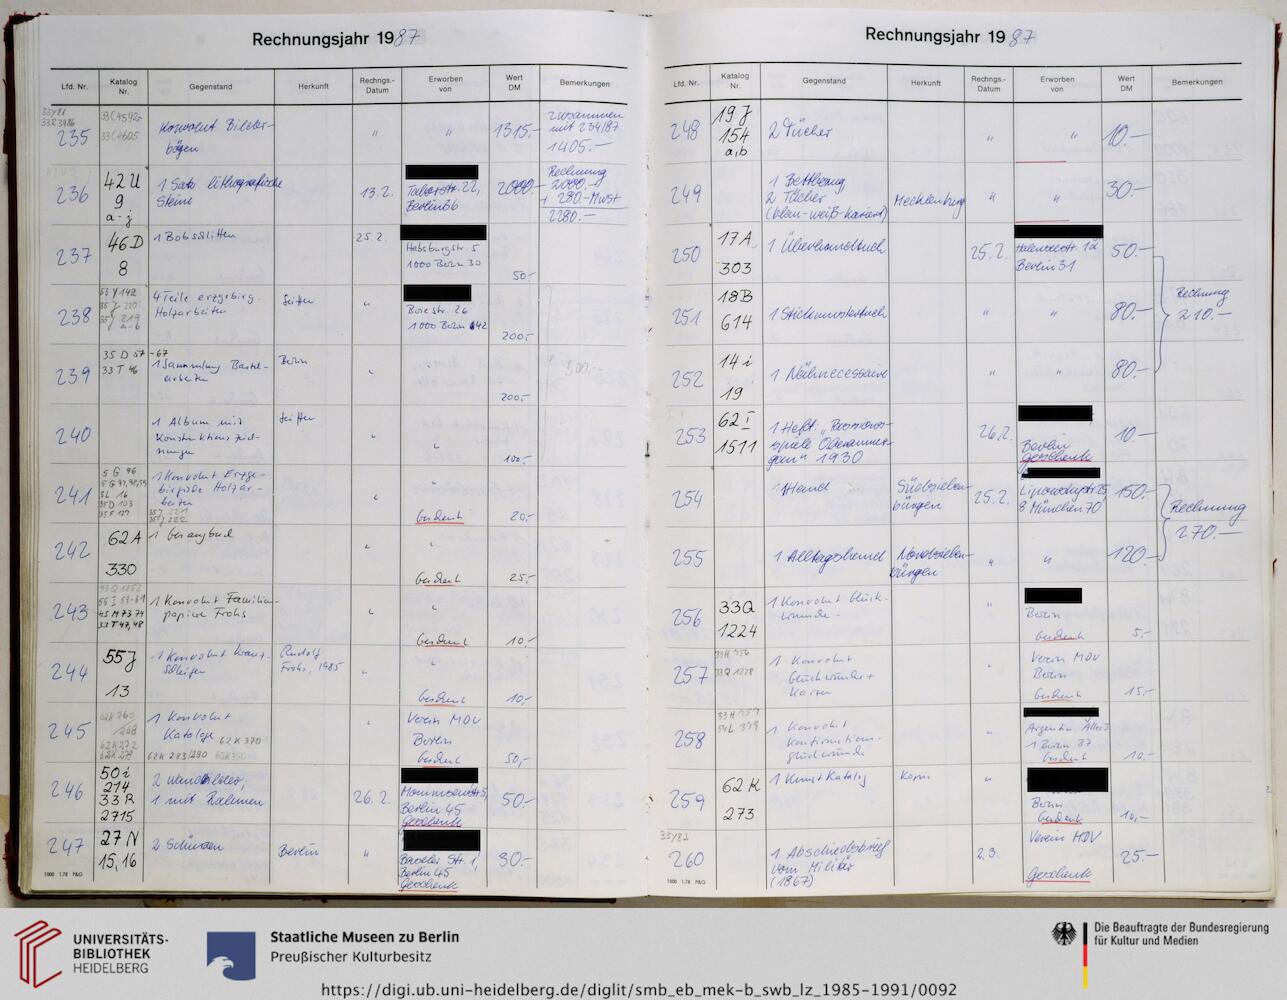 Rechnungsjahr 1987
Lfd. Nr.
Katalog Nr.
Gegenstand
Herkunft
Rechngs.-Datum
Erworben von
Wert DM
Bemerkungen
33Y81
235
Konvolut Bilder-
bögen
"
"
1315.-
zusammen
mit 234/87
1405.-
236
42U
9
a-j
1 Satz lithografische
Steine
13.2.
Berlin 36
2000.-
Rechnung
2000.-
+ 280.- Mwst
2280.-
237
46D
8
1 Bobschlitten
25.2.
Habsburgstr. 5
1000 Berlin 30
50,-
238
4 Teile erzgebirg.
Holzarbeiten
Seiffen
"
1000 Berlin 42
200,-
239
35 D 57-67
33 T 46
1 Sammlung Bastel-
arbeiten
Berlin
"
"
200,-
500,-
240
1 Album mit
Konstruktionszeich-
nungen
Seiffen
"
"
100,-
241
5 G 96
1 Konvolut Erzge-
birgische Holzar-
beiten
"
"
Geschenk
20,-
242
62A
330
1 Gesangbuch
"
"
Geschenk
25,-
243
33 T 47, 48
1 Konvolut Familien-
papiere Frohs
"
"
Geschenk
10,-
244
55J
13
1 Konvolut Kranz-
schleifen
Rudolf
Frohs, 1985
"
"
Geschenk
10,-
245
62K260
/268
62K272
1 Konvolut
Kataloge 62K270
62K 283/290
"
Verein MDV
Berlin
Geschenk
50,-
246
50i
214
33R
2715
2 Wandbilder,
1 mit Rahmen
26.2.
Berlin 45
Geschenk
50.-
247
27N
15,16
2 Schürzen
Berlin
"
Berlin 45
Geschenk
30.-
1000 1.78 P&G
Rechnungsjahr 1987
Lfd. Nr.
Katalog Nr.
Gegenstand
Herkunft
Rechngs.-Datum
Erworben von
Wert DM
Bemerkungen
248
19J
154
a,b
2 Tücher
"
"
10.-
249
1 Bettbezug
2 Tücher
(blau-weiß-kariert)
Mecklenburg
"
"
30.-
250
17A
303
1 Überhandtuch
25.2.
Berlin 31
50.-
251
18B
614
1 Stickmustertuch
"
"
80.-
Rechnung
210.-
252
14i
19
1 Nähnecessaire
"
"
80.-
253
62I
1511
1 Heft: "Passions-
spiele Oberammer-
gau" 1930
26.2.
Berlin
Geschenk
10.-
254
1 Hemd
Südsieben-
bürgen
25.2.
8 München 70
150.-
Rechnung
270.-
255
1 Alltagshemd
Nordsieben-
bürgen
"
"
120.-
256
33Q
1224
1 Konvolut Glück-
wünsche
"
Berlin
Geschenk
5,-
257
33H 756
33Q 1228
1 Konvolut
Glückwunsch-
karten
"
Verein MDV
Berlin
Geschenk
15,-
258
1 Konvolut
Konfirmations-
glückwünsche
"
1 Berlin 37
Geschenk
10.-
259
62K
273
1 Kunstkatalog
Kopie
"
Berlin
Geschenk
10,-
33Y82
260
1 Abschiedsbrief
vom Militär
(1867)
2.3.
Verein MDV
Geschenk
25.-
1000 1.78 P&G
UNIVERSITÄTS-
BIBLIOTHEK
HEIDELBERG
Staatliche Museen zu Berlin
Preußischer Kulturbesitz
Die Beauftragte der Bundesregierung
für Kultur und Medien
https://digi.ub.uni-heidelberg.de/diglit/smb_eb_mek-b_swb_lz_1985-1991/0092